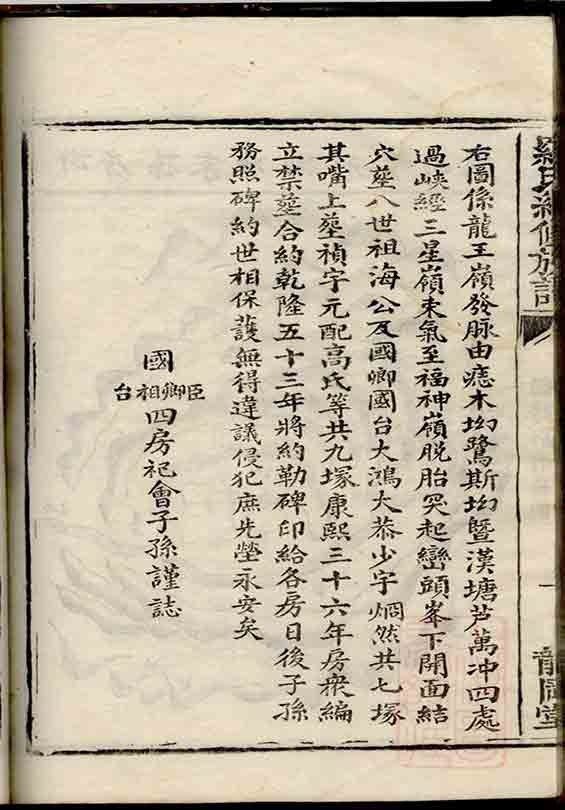 羅氏續修族譜
一
龍岡堂
右圖係龍王嶺發脉由梽木坳鷺斯坳暨漢塘芦萬冲四處
過峽經三星嶺束氣至福神嶺脱胎突起巒頭峯下開面結
穴塟八世祖海公及國卿國台大鴻大恭少宇烱然共七塚
其嘴上塟禎宇元配高氏等共九塚康熙三十六年房衆編
立禁塟合約乾隆五十三年將約勒碑印給各房日後子孫
務照碑約世相保護無得違議侵犯庶先塋永安矣
國臣卿相台四房祀會子孫謹誌